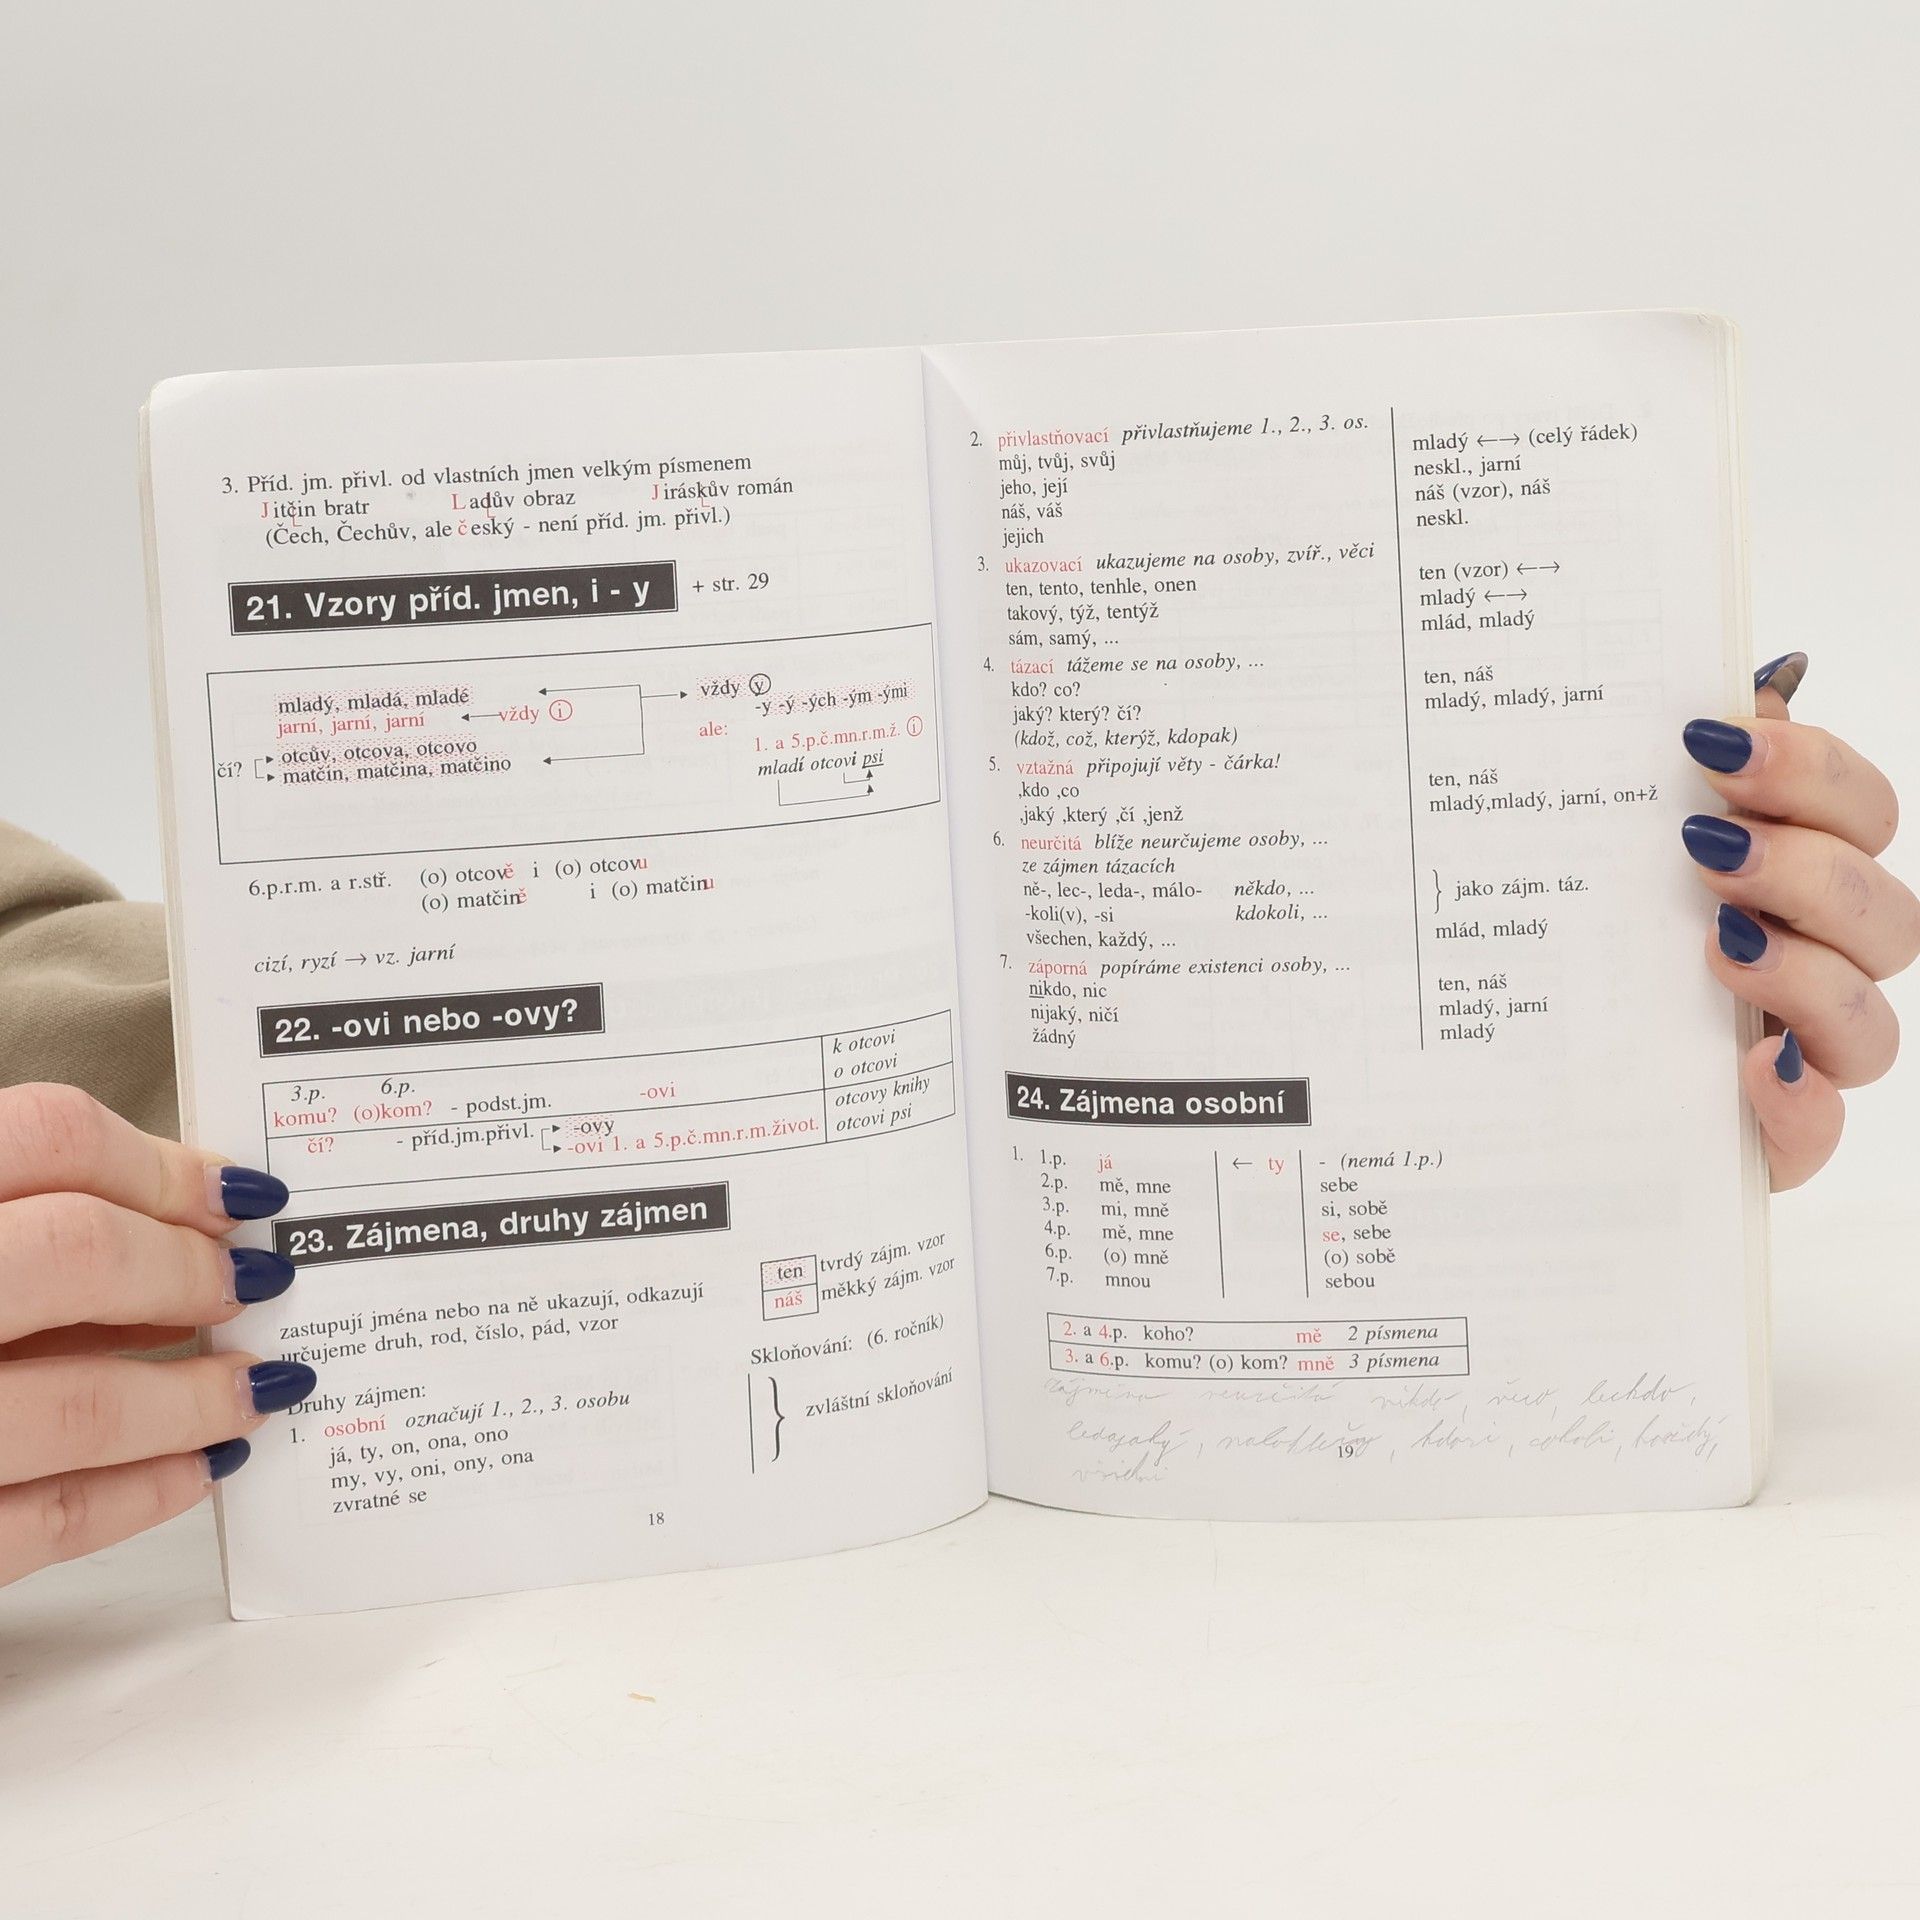 3. Příd. jm. přivl. od vlastních jmen velkým písmenem
Jitčin bratr Ladův obraz Jiráskův román
(Čech, Čechův, ale český - není příd. jm. přivl.)
21. Vzory příd. jmen, i - y + str. 29
mladý, mladá, mladé
jarní, jarní, jarní ← vždy i
čí? otcův, otcova, otcovo
matčin, matčina, matčino
vždy y
-y -ý -ých -ým -ými
ale:
1. a 5.p.č.mn.r.m.ž. i
mladí otcovi psi
6.p.r.m. a r.stř. (o) otcově i (o) otcovu
(o) matčině i (o) matčinu
cizí, ryzí → vz. jarní
22. -ovi nebo -ovy?
3.p. 6.p.
komu? (o)kom? - podst.jm. -ovi
k otcovi
o otcovi
čí? - příd.jm.přivl. -ovy
-ovi 1. a 5.p.č.mn.r.m.život.
otcovy knihy
otcovi psi
23. Zájmena, druhy zájmen
zastupují jména nebo na ně ukazují, odkazují
určujeme druh, rod, číslo, pád, vzor
ten tvrdý zájm. vzor
náš měkký zájm. vzor
Skloňování: (6. ročník)
Druhy zájmen:
1. osobní označují 1., 2., 3. osobu
já, ty, on, ona, ono
my, vy, oni, ony, ona
zvratné se
} zvláštní skloňování
18
2. přivlastňovací přivlastňujeme 1., 2., 3. os.
můj, tvůj, svůj mladý ←→ (celý řádek)
jeho, její neskl., jarní
náš, váš náš (vzor), náš
jejich neskl.
3. ukazovací ukazujeme na osoby, zvíř., věci
ten, tento, tenhle, onen ten (vzor) ←→
takový, týž, tentýž mladý ←→
sám, samý, ... mlád, mladý
4. tázací tážeme se na osoby, ...
kdo? co? ten, náš
jaký? který? čí? mladý, mladý, jarní
(kdož, což, kterýž, kdopak)
5. vztažná připojují věty - čárka!
,kdo ,co ten, náš
,jaký ,který ,čí ,jenž mladý,mladý, jarní, on+ž
6. neurčitá blíže neurčujeme osoby, ...
ze zájmen tázacích
ně-, lec-, leda-, málo- někdo, ...
-koli(v), -si kdokoli, ...
} jako zájm. táz.
všechen, každý, ... mlád, mladý
7. záporná popíráme existenci osoby, ...
nikdo, nic ten, náš
nijaký, ničí mladý, jarní
žádný mladý
24. Zájmena osobní
1. 1.p. já ← ty - (nemá 1.p.)
2.p. mě, mne sebe
3.p. mi, mně si, sobě
4.p. mě, mne se, sebe
6.p. (o) mně (o) sobě
7.p. mnou sebou
2. a 4.p. koho? mě 2 písmena
3. a 6.p. komu? (o) kom? mně 3 písmena
zájmena neurčitá někdo, něco, leckdo,
ledajaký,
19